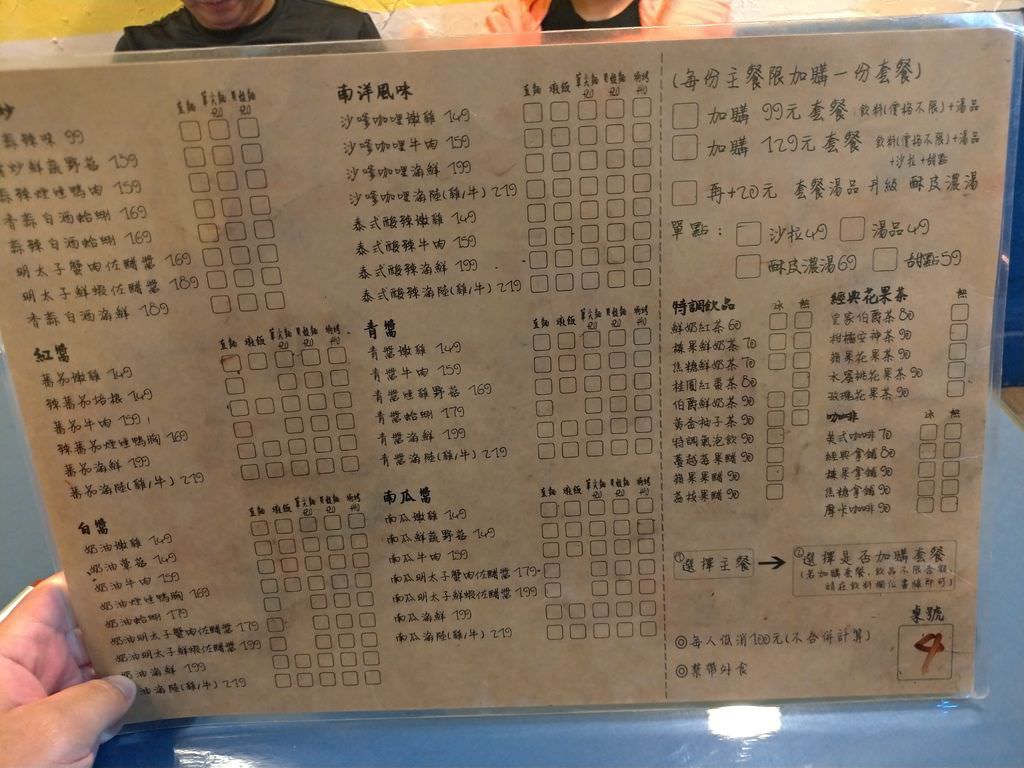 炒
蒜辣味 99
炒鮮蔬野菇 159
蒜辣煙燻鴨肉 159
香蒜白酒蛤蜊 169
蒜辣白酒蛤蜊 169
明太子蟹肉佐醋醬 169
明太子鮮蝦佐醋醬 189
香蒜白酒海鮮 189
紅醬
直麵 燉飯 筆尖麵 貝殼麵 焗烤
蕃茄嫩雞 149
辣蕃茄培根 149
蕃茄牛肉 159
辣蕃茄煙燻鴨胸 169
蕃茄海鮮 199
蕃茄海陸(雞/牛) 219
白醬
直麵 燉飯 筆尖麵 貝殼麵 焗烤
奶油嫩雞 149
奶油薑菇 149
奶油牛肉 159
奶油煙燻鴨肉 169
奶油蛤蜊 179
奶油明太子蟹肉佐醋醬 179
奶油明太子鮮蝦佐醋醬 199
奶油海鮮 199
油海陸(雞/牛) 219
南洋風味
直麵 燉飯 筆尖麵 貝殼麵 焗烤
沙嗲咖哩嫩雞 149
沙嗲咖哩牛肉 159
沙嗲咖哩海鮮 199
沙嗲咖哩海陸(雞/牛) 219
泰式酸辣嫩雞 149
泰式酸辣牛肉 159
泰式酸辣海鮮 199
泰式酸辣海陸(雞/牛) 219
青醬
直麵 燉飯 筆尖麵 貝殼麵 焗烤
青醬嫩雞 149
青醬牛肉 159
青醬煙雞野菇 169
青醬蛤蜊 179
青醬海鮮 199
青醬海陸(雞/牛) 219
南瓜醬
直麵 燉飯 筆尖麵 貝殼麵 焗烤
南瓜嫩雞 149
南瓜鮮蔬野菇 149
南瓜牛肉 159
南瓜明太子蟹肉佐醋醬 179
南瓜明太子鮮蝦佐醋醬 199
南瓜海鮮 199
南瓜海陸(雞/牛) 219
(每份主餐限加購一份套餐)
加購 99元 套餐 飲料(價格不限)+湯品
加購 129元 套餐 飲料(價格不限)+湯品
+沙拉+甜點
再+20元 套餐湯品 升級 酥皮濃湯
單點: 沙拉49 湯品49
酥皮濃湯69 甜點59
特調飲品 冰 熱
鮮奶紅茶 60
榛果鮮奶茶 70
焦糖鮮奶茶 70
桂圓紅棗茶 80
伯爵鮮奶茶 90
黃金柚子茶 90
特調氣泡飲 90
蔓越莓果醋 90
蘋果果醋 90
荔枝果醋 90
經典花果茶 熱
皇家伯爵茶 80
柑橘安神茶 90
蘋果花果茶 90
水蜜桃花果茶 90
玫瑰花果茶 90
咖啡 冰 熱
美式咖啡 70
經典拿鐵 80
榛果拿鐵 90
焦糖拿鐵 90
摩卡咖啡 90
①選擇主餐 → ②選擇是否加購套餐
(若加購套餐,飲品不限金額,
請在飲料欄位畫線即可)
◎每人低消100元(不合併計算)
◎禁帶外食
桌號
9